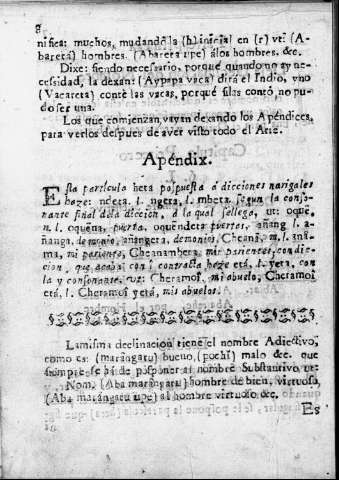 8
nifica: muchos, mudando la (h) inicial en (r) vt: (A-
baretá) hombres. (Abaretá upe) álos hombres. &c.
Dixe: siendo necessario, porqué quando no ay ne-
cessidad, la dexan: (Aypapa vaca) dirá el Indio, vno
(Vacareta) conté las vacas, porqué silas contó no pu-
do ser una.
Los que comienzan vayan dexando los Apéndices,
para verlos despues de aver visto todo el Arte.
Apéndix.
Esta particula heta pospuesta á dicciones narigales
haze: ndeta. l. ngeta, l. mbeta, segun la conso-
nante final dela diccion, á la qual sellega, ut: oquê,
n. l. oquêna, puerta. oquêndeta puertas, añang l. a-
ñanga, demonio, añangeta, demonios, Cheanâ, m. l. anâ-
ma, mi pariente, Cheanambeta, mis parientes, con dic-
cion, que acaba con i contracta haze etá. l. yeta, con
la y consonante. vt: Cheramoî, mi abuelo, Cheramoî
etá, l. Cheramoî yetá, mis abuelos.
Lamisma declinacion tiene el nombre Adiectivo,
como es: (marângatu) bueno, (pochî) malo &c. que
siempre se há de posponer al nombre Substantivo vt:
Nom. (Aba marângatu) hombre de bien, virtuoso,
(Aba marângatu upe) al hombre virtuoso &c.
Es